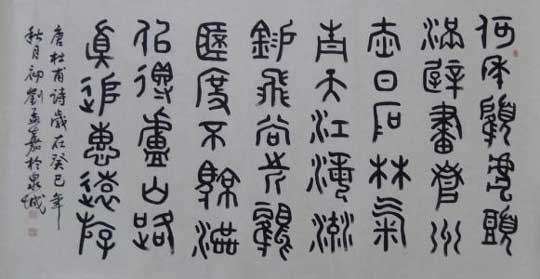 何年顧虎頭
滿壁畫滄州
赤日石林氣
青天江海流
錫飛常近鶴
杯度不驚鷗
似得廬山路
真隨惠遠游
唐杜甫詩歲在癸巳年
秋月初劉孟嘉於泉城